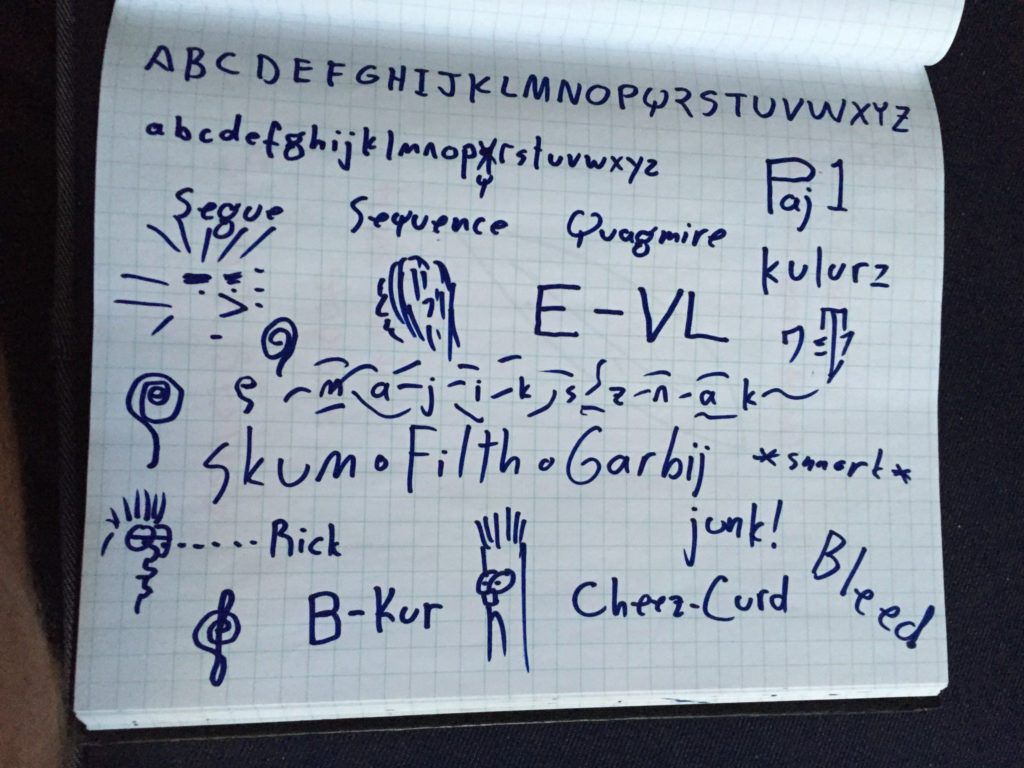 ABCDEFGHIJKLMNOPQRSTUVWXYZ
abcdefghijklmnopqrstuvwxyz
Paj 1
Segue Sequence Quagmire
kulurz
E-VL
majik, sznak
Skum • Filth • Garbij *snnort*
junk!
Rick
Bleed
B-Kur
Cheez-Curd